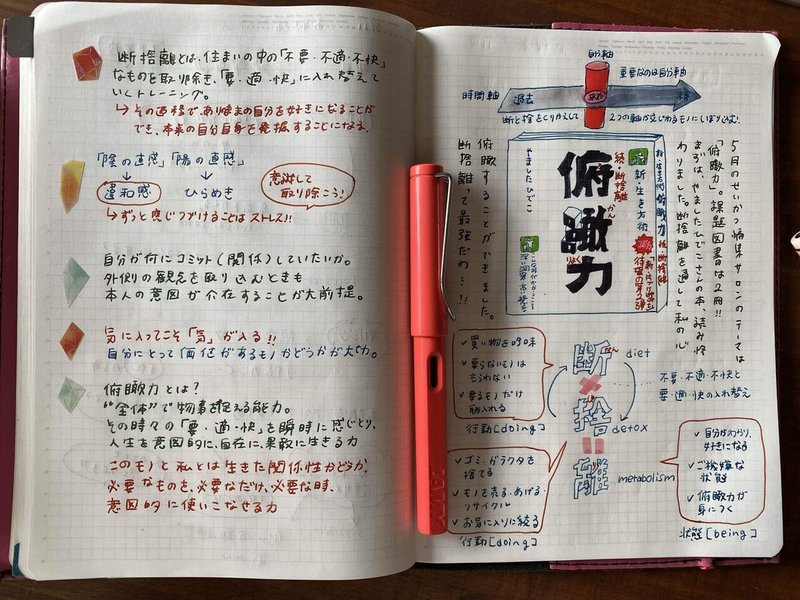 断捨離とは、住まいの中の「不要・不適・不快」
なものを取り除き、「要・適・快」に入れ替えて
いくトレーニング。
↳その過程でありのままの自分を好きになることが
でき、本来の自分自身を発掘することになる。
「陰の直感」「陽の直感」
↓ ↓
違和感 ひらめき
意識して
取り除こう！
↳ずっと感じつづけることはストレス!!
自分が何にコミット（関係）していたいか。
外側の観点を取り込むときも
本人の意図が介在することが大前提。
気に入ってこそ「気」が入る!!
自分にとって価値があるモノかどうかが大切。
俯瞰力とは？
“全体”で物事を捉える能力。
その時々の「要・適・快」を瞬時に感じとり、
人生を意図的に、自在に、果敢に生きる力
このモノと私とは生きた関係性かどうか。
必要なものを、必要なだけ、必要な時、
意図的に使いこなせる力
LAMY
自分軸
重要なのは自分軸
時間軸
過去
現在
断と捨をくりかえして
2つの軸が交じわるモノにしぼり込む！
5月のせいかつ編集サロンのテーマは
「俯瞰力」。課題図書は2冊!!
まずは、やましたひでこさんの本、読み終
わりました。断捨離を通して私の心
俯瞰することができました。
断捨離って最強だわ…!!
俯瞰力
かん
りょく
続・断捨離
新・生き方術
やましたひでこ
待望の第2弾
買い物を吟味
要らないモノは
もらわない
要るモノだけ
取入れる
行動[doing]
断
だん
diet
×
捨
detox
＝
離
metabolism
不要・不適・不快と
要・適・快の入れ替え
ゴミ・ガラクタを
捨てる
モノを売る・あげる・
リサイクル
お気に入りに絞る
行動[doing]
自分がわかり、
好きになる
ご機嫌な
状態
俯瞰力が
身につく
状態[being]